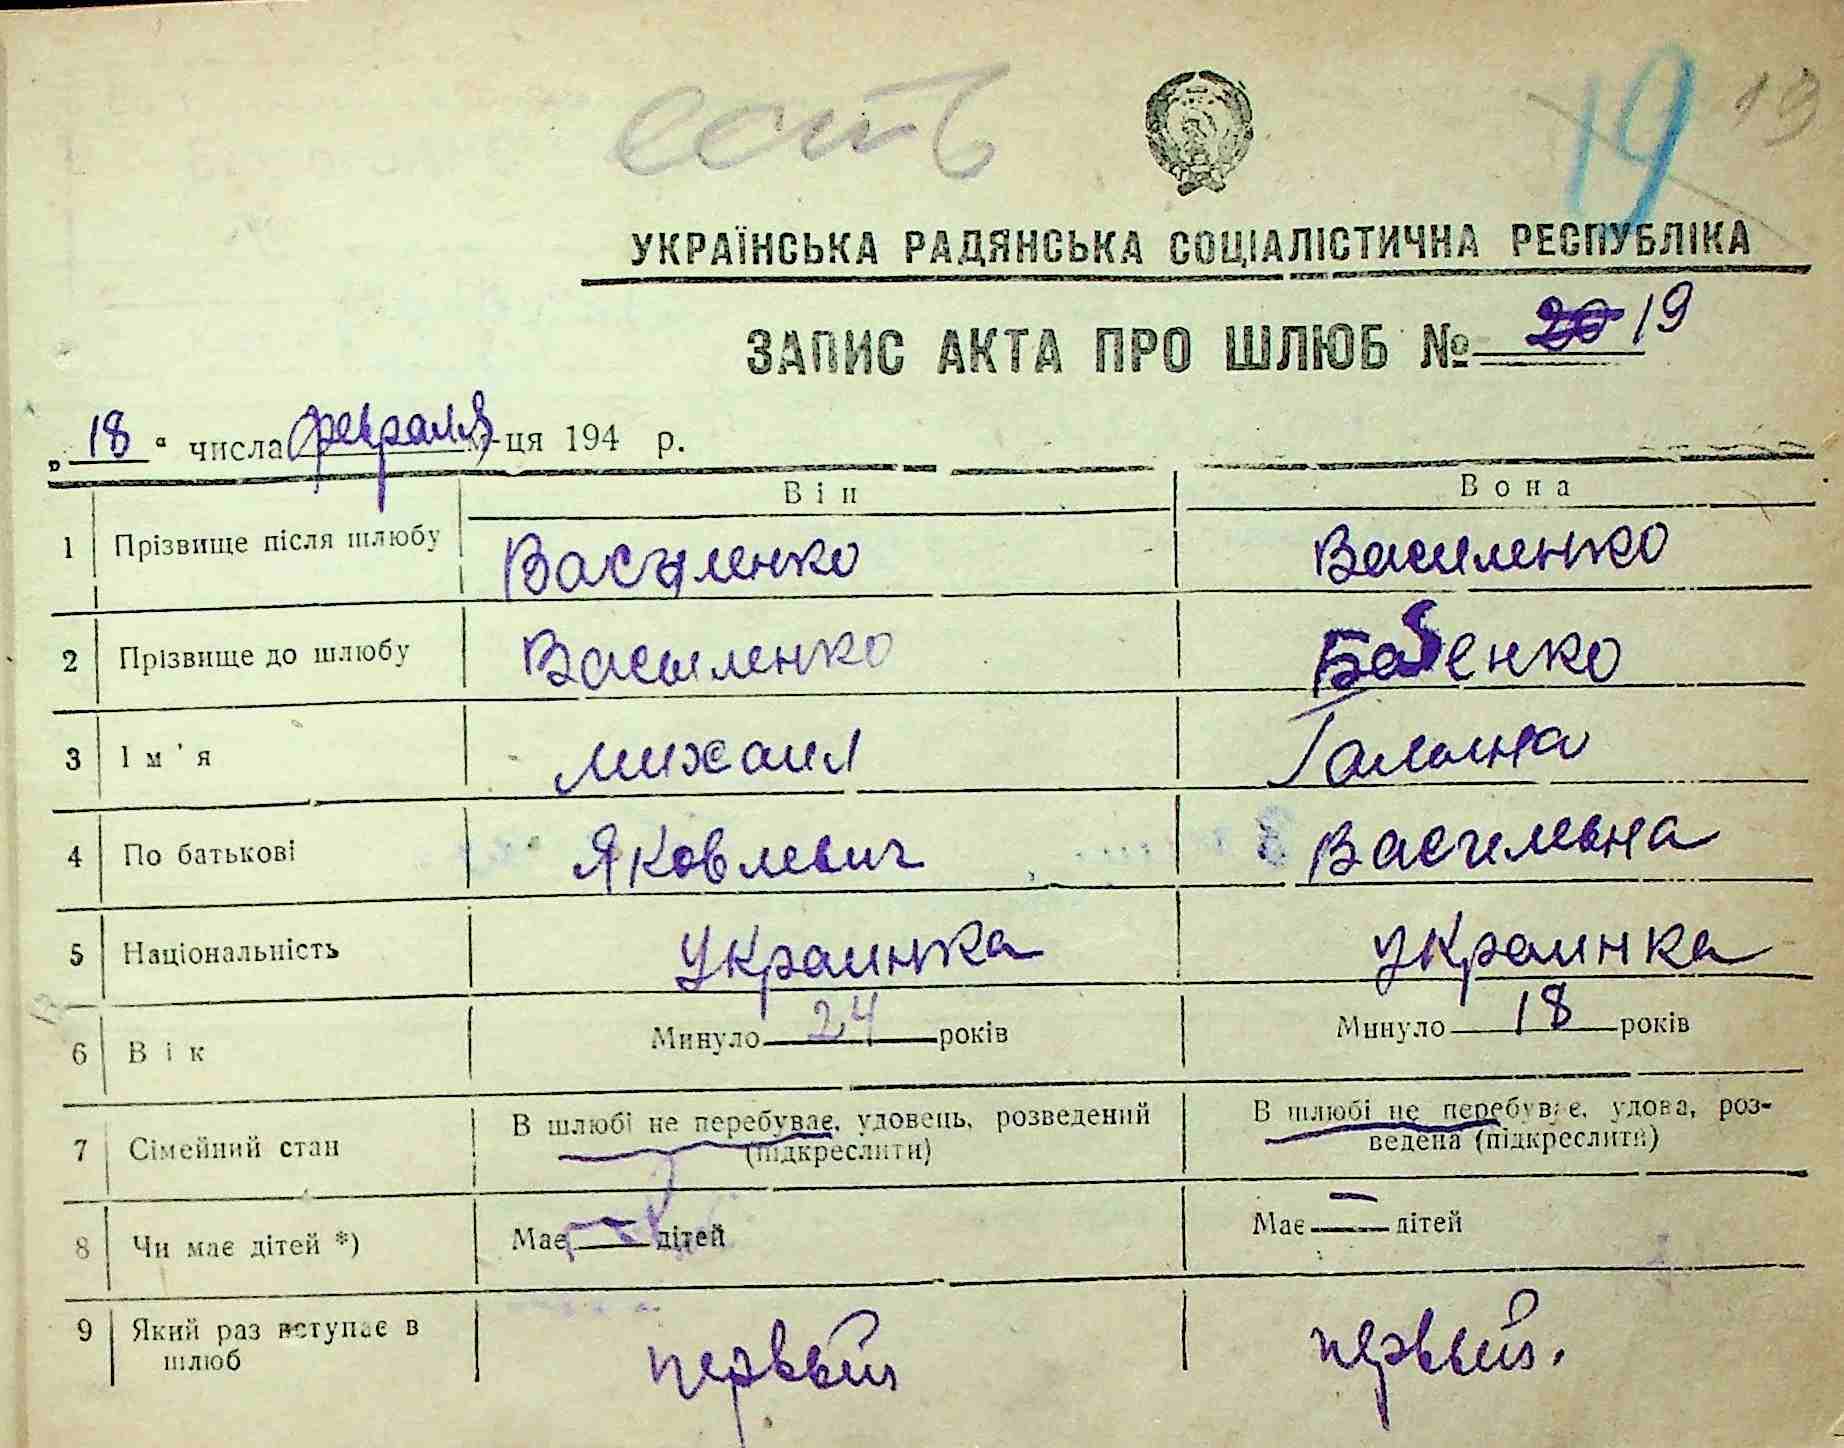 есть
19 19
УКРАЇНСЬКА РАДЯНСЬКА СОЦІАЛІСТИЧНА РЕСПУБЛІКА
ЗАПИС АКТА ПРО ШЛЮБ № 20 19
„ 18 “ числа февраля м-ця 194 р.
Він Вона
1 Прізвище після шлюбу Васыленко Василенко
2 Прізвище до шлюбу Василенко Бабенко
3 Ім'я Михаил Галина
4 По батькові Яковлевич Василевна
5 Національність Украинка Украинка
6 Вік Минуло 24 років Минуло 18 років
7 Сімейний стан В шлюбі не перебуває, удовець, розведений (підкреслити) В шлюбі не перебуває, удова, роз-
ведена (підкреслити)
8 Чи має дітей *) Має — дітей Має — дітей
9 Який раз вступає в шлюб первый первый.